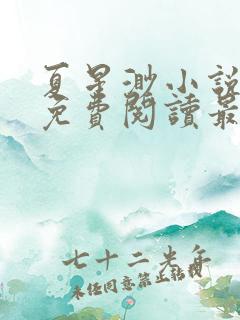 夏星渺小說
免費閱讀最
七十二半年
未經同意禁止轉載